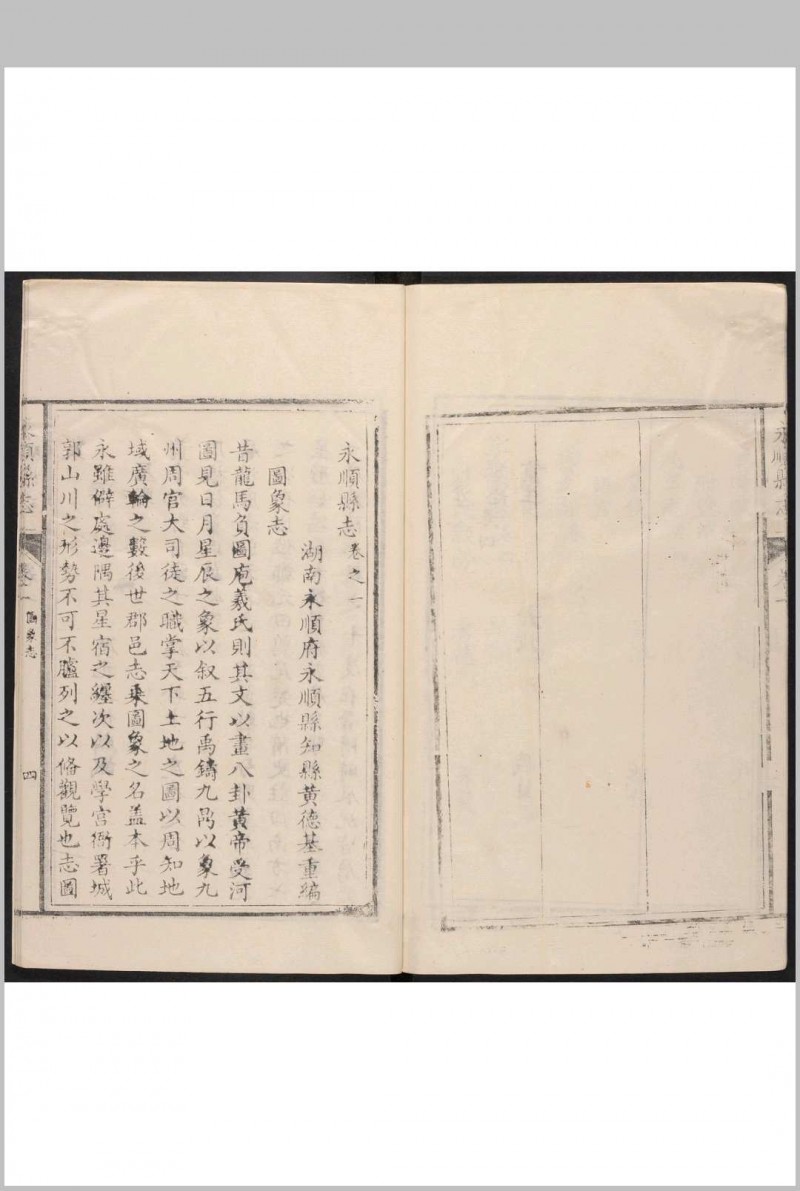 永順縣志
永順縣志卷之一
湖南永順府永順縣知縣黃德基重編
圖象志
昔龍馬負圖庖羲氏則其文以畫八卦黃帝受河
圖見日月星辰之象以叙五行禹鑄九鼎以象九
州周官大司徒之職掌天下土地之圖以周知地
域廣輪之數後世郡邑志乗圖象之名盖本乎此
永雖僻處邊隅其星宿之纏次以及學宫衙署城
郭山川之形勢不可不臚列之以俻觀覽也志圖
永順縣志
卷之一
圖象志
四